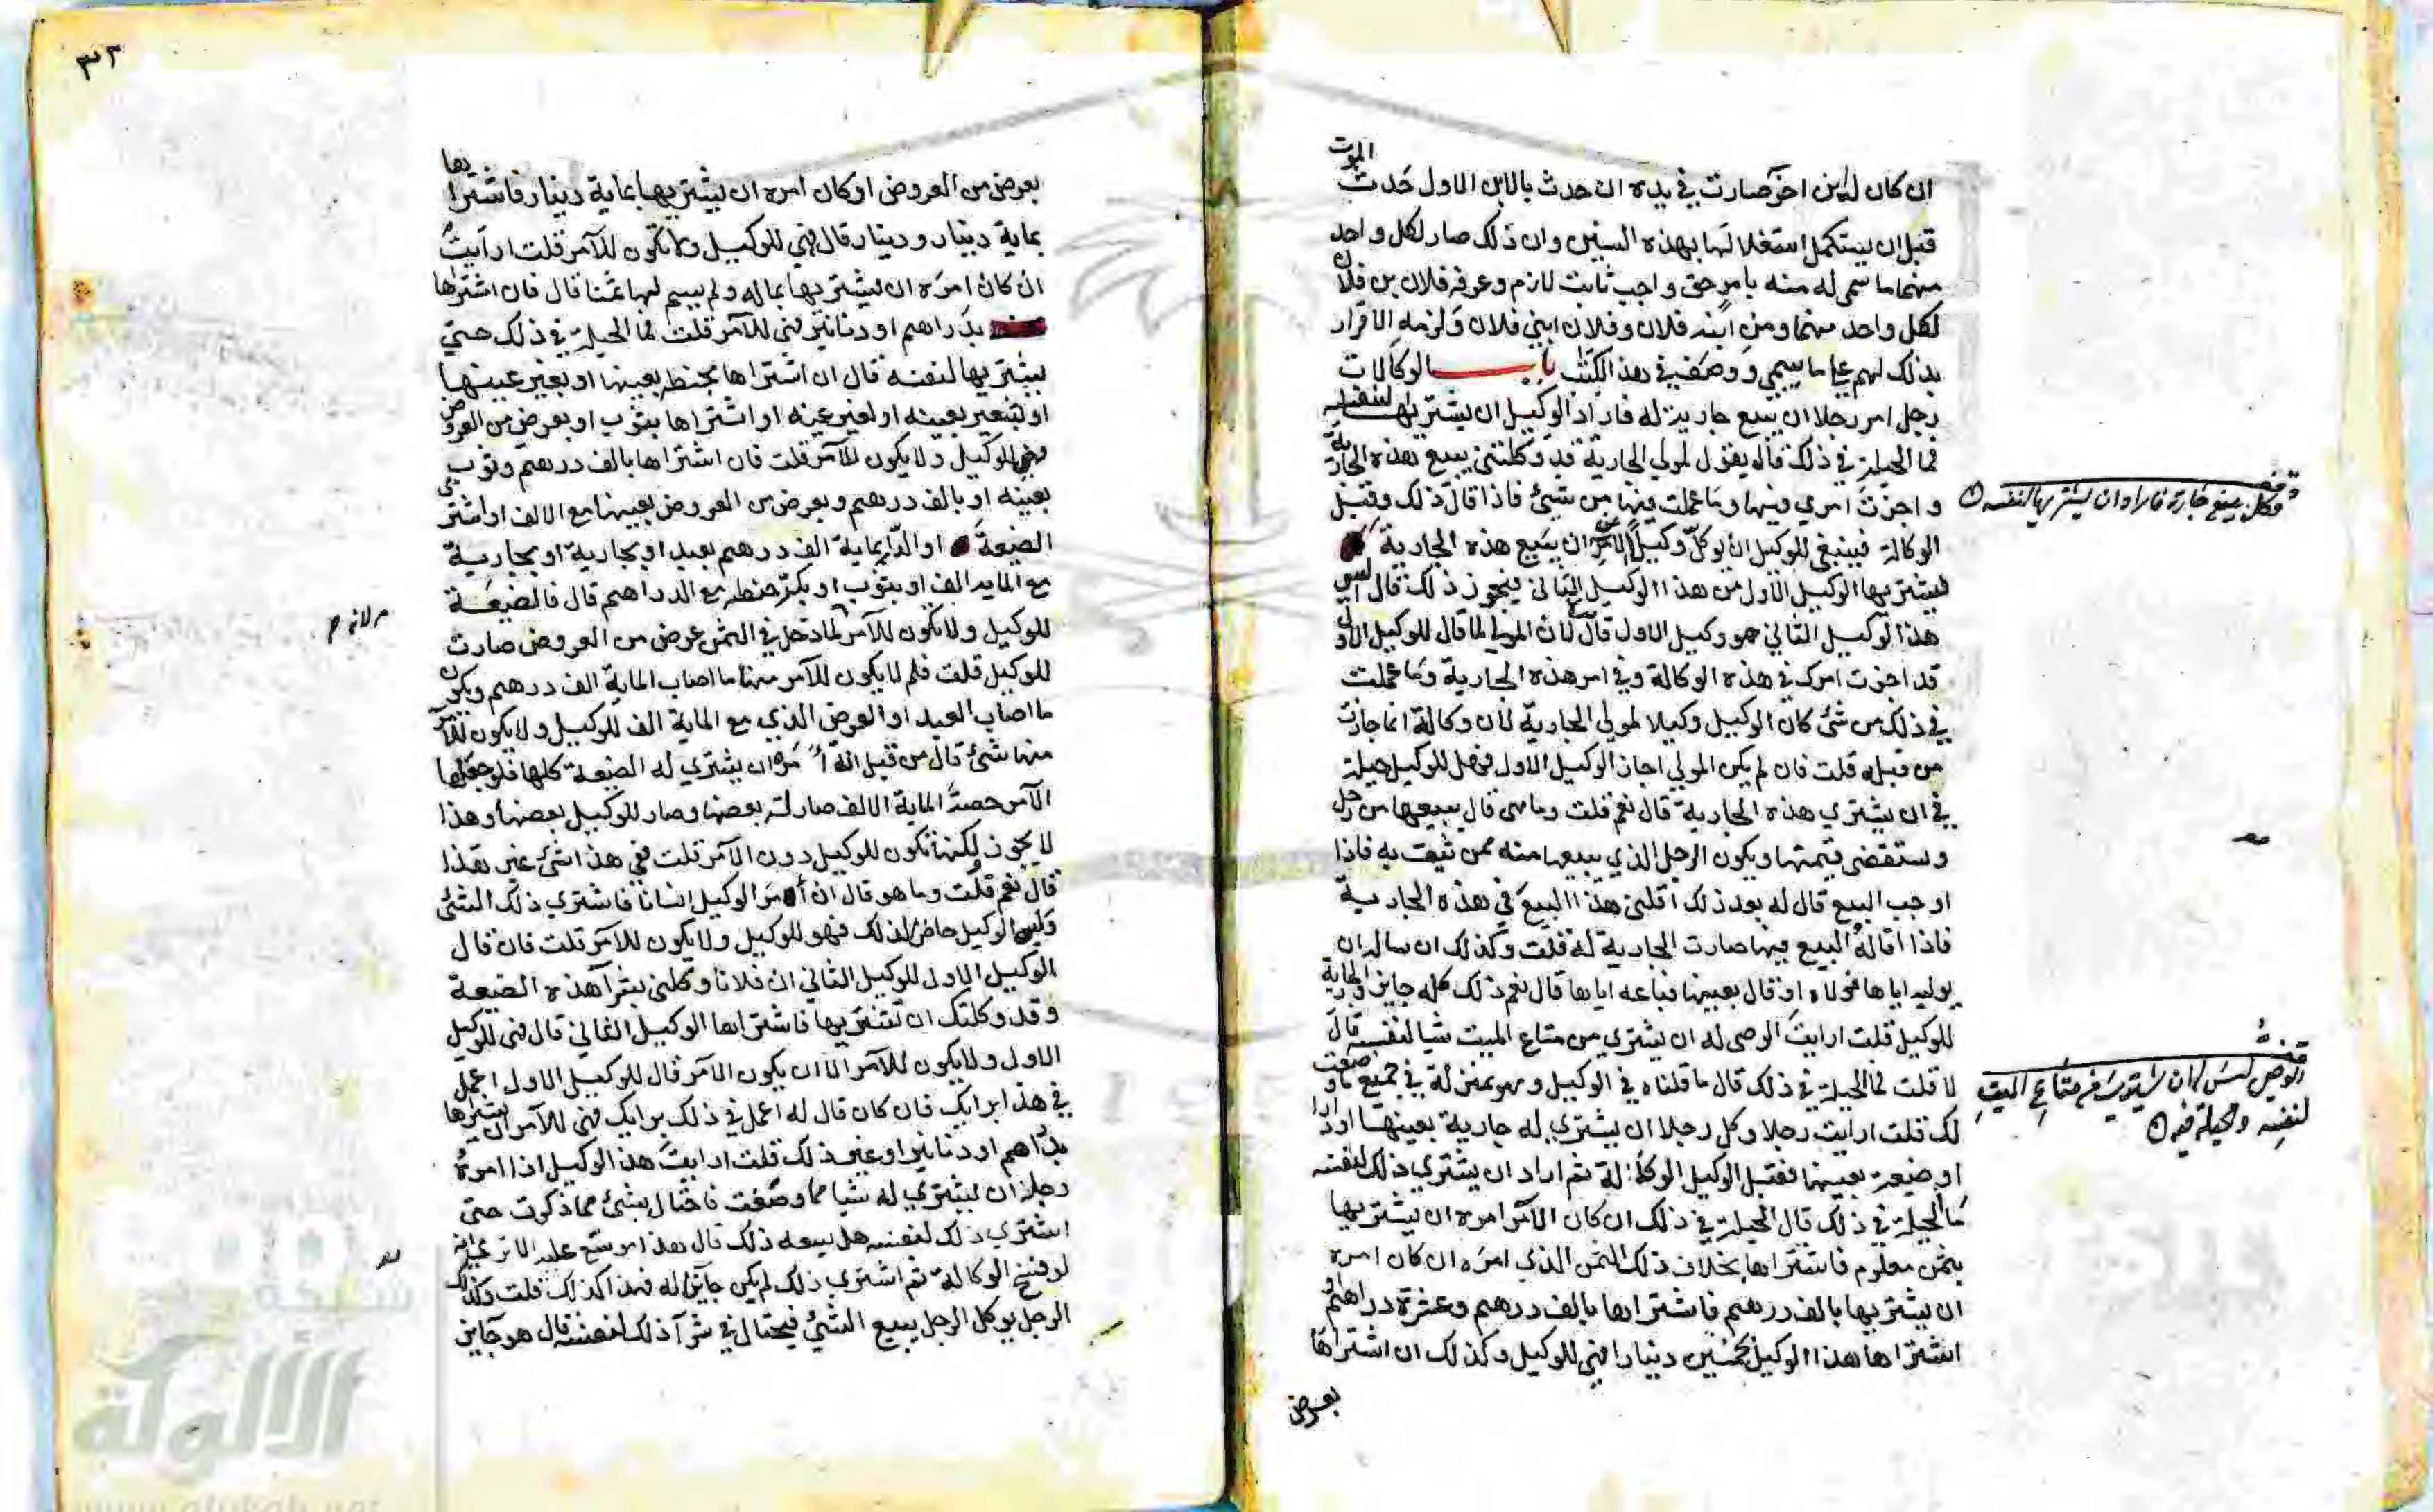 ان كان لابن اخر صارت في يده ان حدث بالابن الاول حدث الموت
قبل ان يستكمل استغلالها بهذه السنين وان ذلك صار لكل واحد
منهما ما سمى له منه بامر حق واجب ثابت لازم وعرفه فلان بن فلان
لكل واحد منهما ومن ابنه فلان وفلان ابني فلان ولزمه الاقرار
بذلك لهم على ما سمي ووصف في هذا الكتب باب الوكالات
رجل امر رجلا ان يبيع جارية له فاراد الوكيل ان يشتريها لنفسه
فما الحيلة في ذلك قال يقول لمولي الجارية قد وكلتني ببيع هذه الجارية
واجزت امري فيها وما عملت فيها من شيئ فاذا قال ذلك وقبل
الوكالة فينبغي للوكيل ان يوكل وكيلا عن الامر ان يبيع هذه الجارية
فيشتريها الوكيل الاول من هذا الوكيل الثاني فيجوز ذلك قال ليس
هذا الوكيل الثاني هو وكيل الاول قال لا لان المولي لما قال للوكيل الاول
قد اجزت امرك في هذه الوكالة وفي امر هذه الجارية وما عملت
في ذلك من شئ كان الوكيل وكيلا لمولي الجارية لان وكالة انما جازت
من قبله قلت فان لم يكن المولي اجاز الوكيل الاول فهل للوكيل حيلة
في ان يشتري هذه الجارية قال نعم قلت وما هي قال يبيعها من رجل
وستقضي قيمتها ويكون الرجل الذي يبيعها منه ممن يثق به فاذا
اوجب البيع قال له بعد ذلك اقلني هذا البيع في هذه الجارية
فاذا اقاله البيع فيها صارت الجارية له قلت وكذلك ان ساله ان
يوليه اياها فولاه او قال بعينها فباعه اياها قال نعم ذلك كله جايز والجارية
للوكيل قلت ارايت الوصي له ان يشتري من متاع الميت شيا لنفسه قال
لا قلت فما الحيلة في ذلك قال ما قلناه في الوكيل وهو بمنزلة في جميع ما وصفت
لك قلت ارايت رجلا وكل رجلا ان يشتري له جارية بعينها او دارا
او ضيعة بعينها فقبل الوكيل الوكالة ثم اراد ان يشتري ذلك لنفسه
ما الحيلة في ذلك قال الحيلة في ذلك ان كان الآمر امره ان يشتريها
بثمن معلوم فاشتراها بخلاف ذلك الثمن الذي امره ان كان امره
ان يشتريها بالف درهم فاشتراها بالف درهم وعشرة دراهم او
اشتراها هذا الوكيل بخمسين دينارا فهي للوكيل وكذلك ان اشتراها
بعرض
وكل ببيع جارية فاراد ان يشتريها لنفسه
الوصي ليس له ان يشتري شيا من متاع الميت
لنفسه والحيلة فيه
٣٢
بعرض من العروض او كان امره ان يشتريها بماية دينار فاشتراها
بماية دينار ودينار قال فهي للوكيل ولا تكون للآمر قلت ارايت
ان كان امره ان يشتريها بماله ولم يسم لها ثمنا قال فان اشتراها
بدراهم او دنانير فهي للآمر قلت فما الحيلة في ذلك حتي
يشتريها لنفسه قال ان اشتراها بحنطة بعينها او بغير عينها
او بشعير بعينه او بغير عينه او اشتراها بثوب او بعرض من العروض
فهي للوكيل ولا يكون للآمر قلت فان اشتراها بالف درهم وثوب
بعينه او بالف درهم وبعرض من العروض بعينها مع الالف او اشترى
الضيعة او الدار بماية الف درهم بعبد او بجارية او بجارية
مع الماية الف او بثوب او بكر حنطة مع الدراهم قال فالضيعة
للوكيل ولا تكون للآمر لما دخل في الثمن عرض من العروض صارت
للوكيل قلت فلم لا يكون للآمر منها ما اصاب الماية الف درهم ويكون
ما اصاب العبد او العرض الذي مع الماية الف للوكيل ولا يكون للآمر
منها شئ قال من قبل انه امره ان يشتري له الضيعة كلها فلو جعلها
الآمر حصة الماية الالف صار له بعضها وصار للوكيل بعضها وهذا
لا يجوز لكنها تكون للوكيل دون الآمر قلت ففي هذا شئ غير هذا
قال نعم قلت وما هو قال ان امر الوكيل انسانا فاشتري ذلك الشئ
وليس الوكيل حاضرا لذلك فهو للوكيل ولا يكون للآمر قلت فان قال
الوكيل الاول للوكيل الثاني ان فلانا وكلني بشرآ هذه الضيعة
وقد وكلتك ان تشتريها فاشتراها الوكيل الثاني قال فهي للوكيل
الاول ولا يكون للآمر الا ان يكون الآمر قال للوكيل الاول اعمل
في هذا برايك فان كان قال له اعمل في ذلك برايك فهي للآمر ان اشتراها
بدراهم او دنانير او غير ذلك قلت ارايت هذا الوكيل اذا امره
رجل ان يشتري له شيا مما وصفت فاحتال بشئ مما ذكرت حتي
اشتري ذلك لنفسه هل يسعه ذلك قال هذا امر يتسع عليه الا تري انه
لو فسخ الوكالة ثم اشتري ذلك لم يكن جايزا له فهذا كذلك قلت وكذلك
الرجل يوكل الرجل ببيع الشئ فيحتال في شرآ ذلك لنفسه قال هو جايز
شبكة
الألولة
www.alukah.net